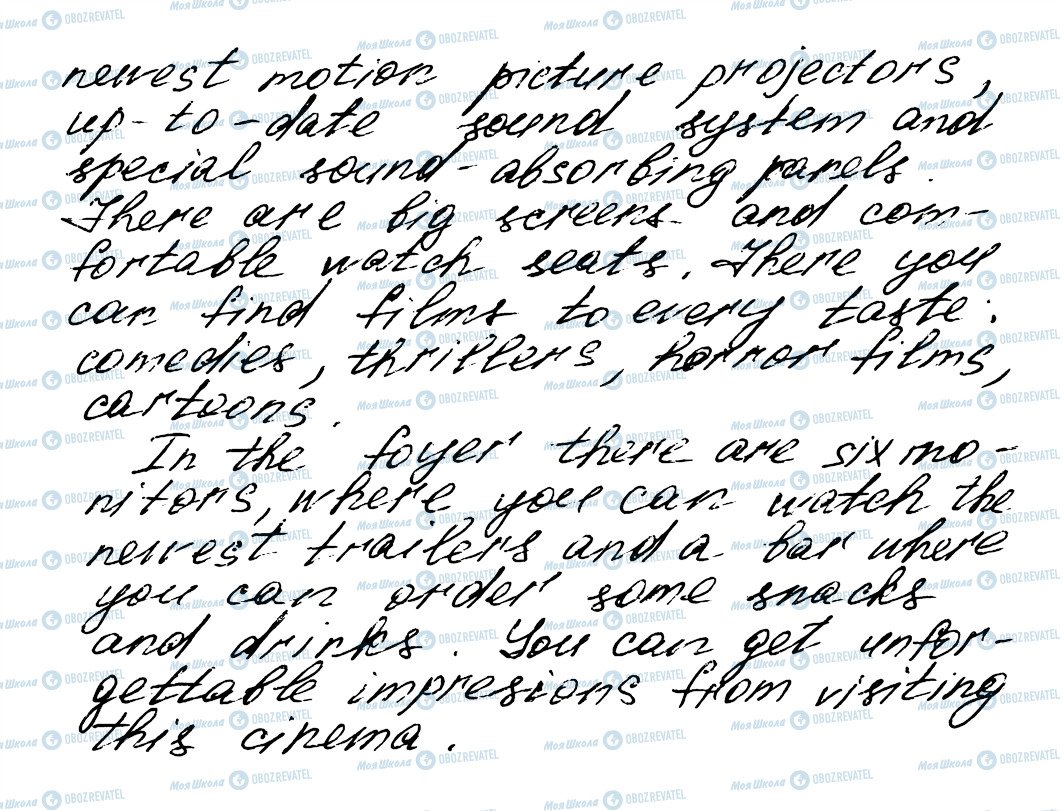 newest motion picture projectors,
up-to-date sound system and
special sound-absorbing panels.
There are big screens and com-
fortable watch seats. There you
can find films to every taste:
comedies, thrillers, horror films,
cartoons.
In the foyer there are six mo-
nitors, where you can watch the
newest trailers and a bar where
you can order some snacks
and drinks. You can get unfor-
gettable impresions from visiting
this cinema.